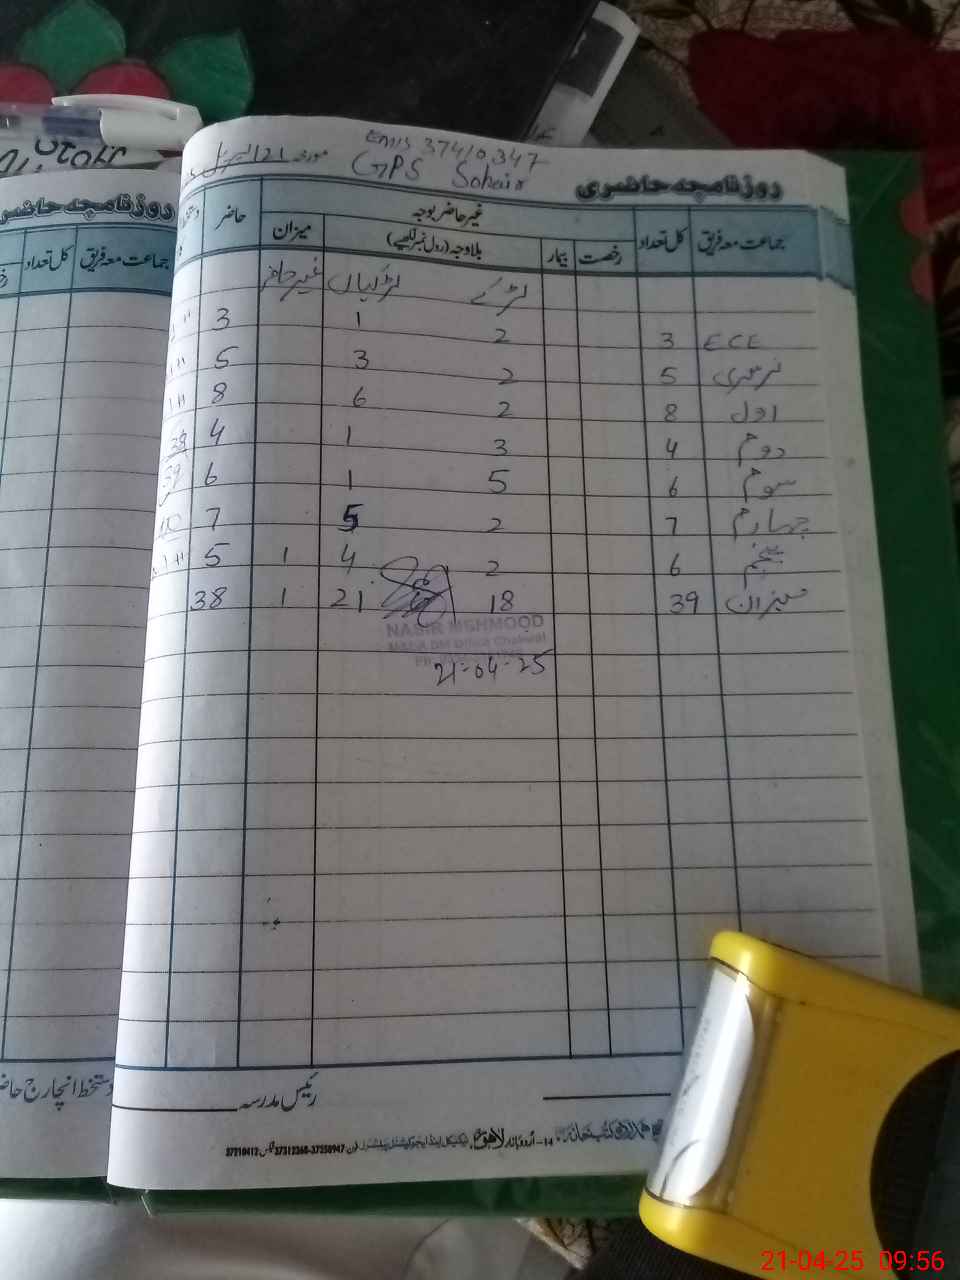 Emis 37410347
مورخہ 21 اپریل
GPS Sohair
روزنامچہ حاضری
جماعت معہ فریق کل تعداد غیر حاضر بوجہ حاضر
رخصت بیمار بلاوجہ (رول نمبر لکھیے) میزان
لڑکے لڑکیاں غیر حاضر
ECE 3 2 1 3
نرسری 5 2 3 5
اول 8 2 6 8
دوم 4 3 1 4
سوم 6 5 1 6
چہارم 7 2 5 7
پنجم 6 2 4 1 5
میزان 39 18 21 1 38
NASIR MEHMOOD
21-04-25
رئیس مدرسہ
37210412 37312360-37350947
روزنامچہ حاضری
جماعت معہ فریق کل تعداد
دستخط انچارج
21-04-25 09:56